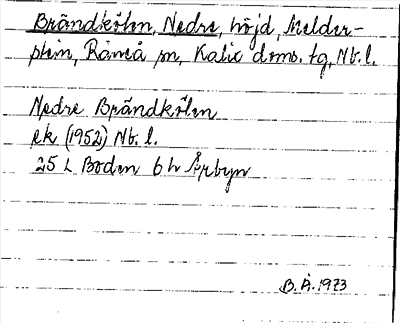 Brändkölen, Nedre, höjd, Melder-
stem, Råneå sn, Kalix doms. tg, Nb. l.
Nedre Brändkölen
ek (1952) Nb. l.
25 L Boden 6 h Årbyn
B. Å. 1973